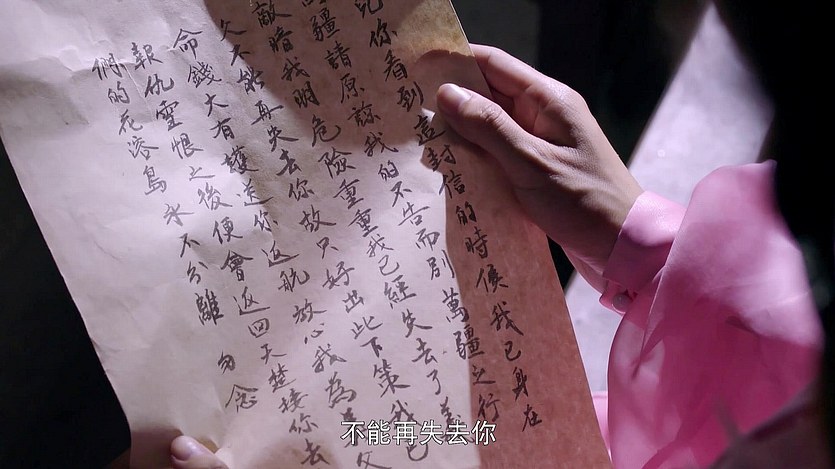 你看到這封信的時候我已身在
疆請原諒我的不告而別萬疆之行
敵暗我明危險重重我已經失去了義
父不能再失去你故只好出此下策我已
命錢大有護送你返航放心我為義父
報仇雪恨之後便會返回天楚接你去
們的花溶島永不分離 勿念
不能再失去你